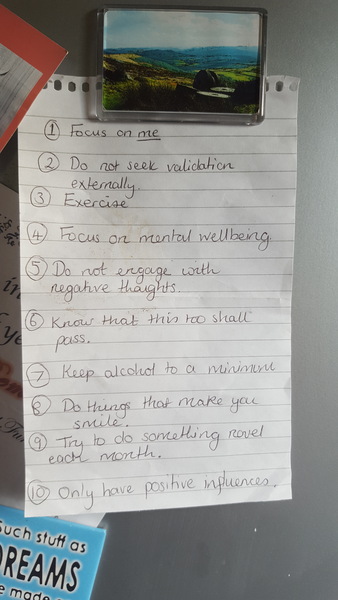 1 Focus on me
2 Do not seek validation
externally.
3 Exercise
4 Focus on mental wellbeing.
5 Do not engage with
negative thoughts.
6 Know that this too shall
pass.
7 Keep alcohol to a minimum
8 Do things that make you
smile.
9 Try to do something novel
each month.
10 Only have positive influences.
Such stuff as
DREAMS